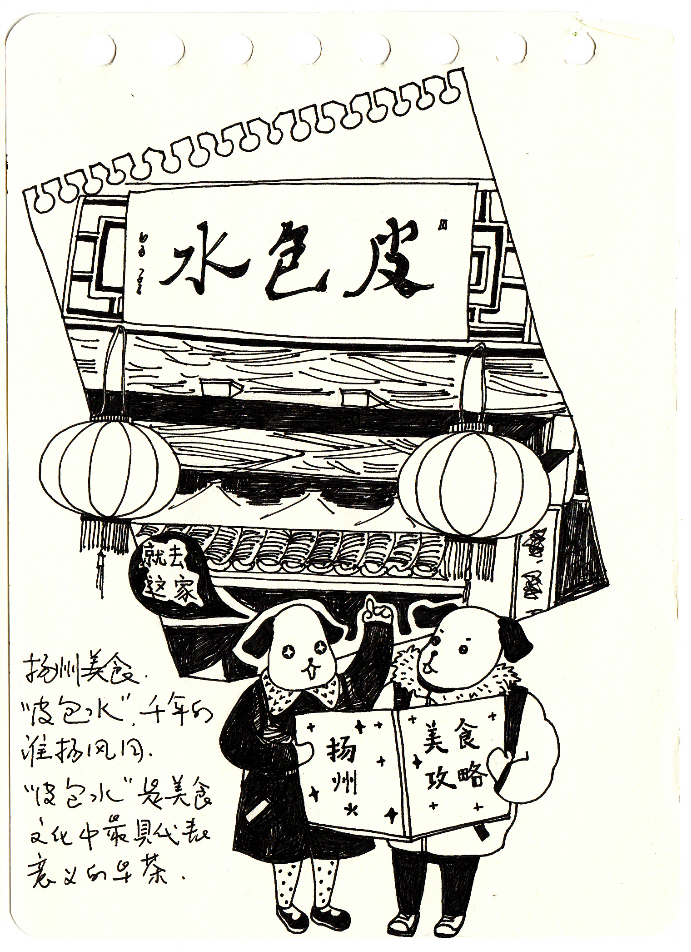 水包皮
就去
这家
扬州美食.
"皮包水",千年的
淮扬风月.
"皮包水"是美食
文化中最具代表
意义的早茶.
扬州
美食
攻略